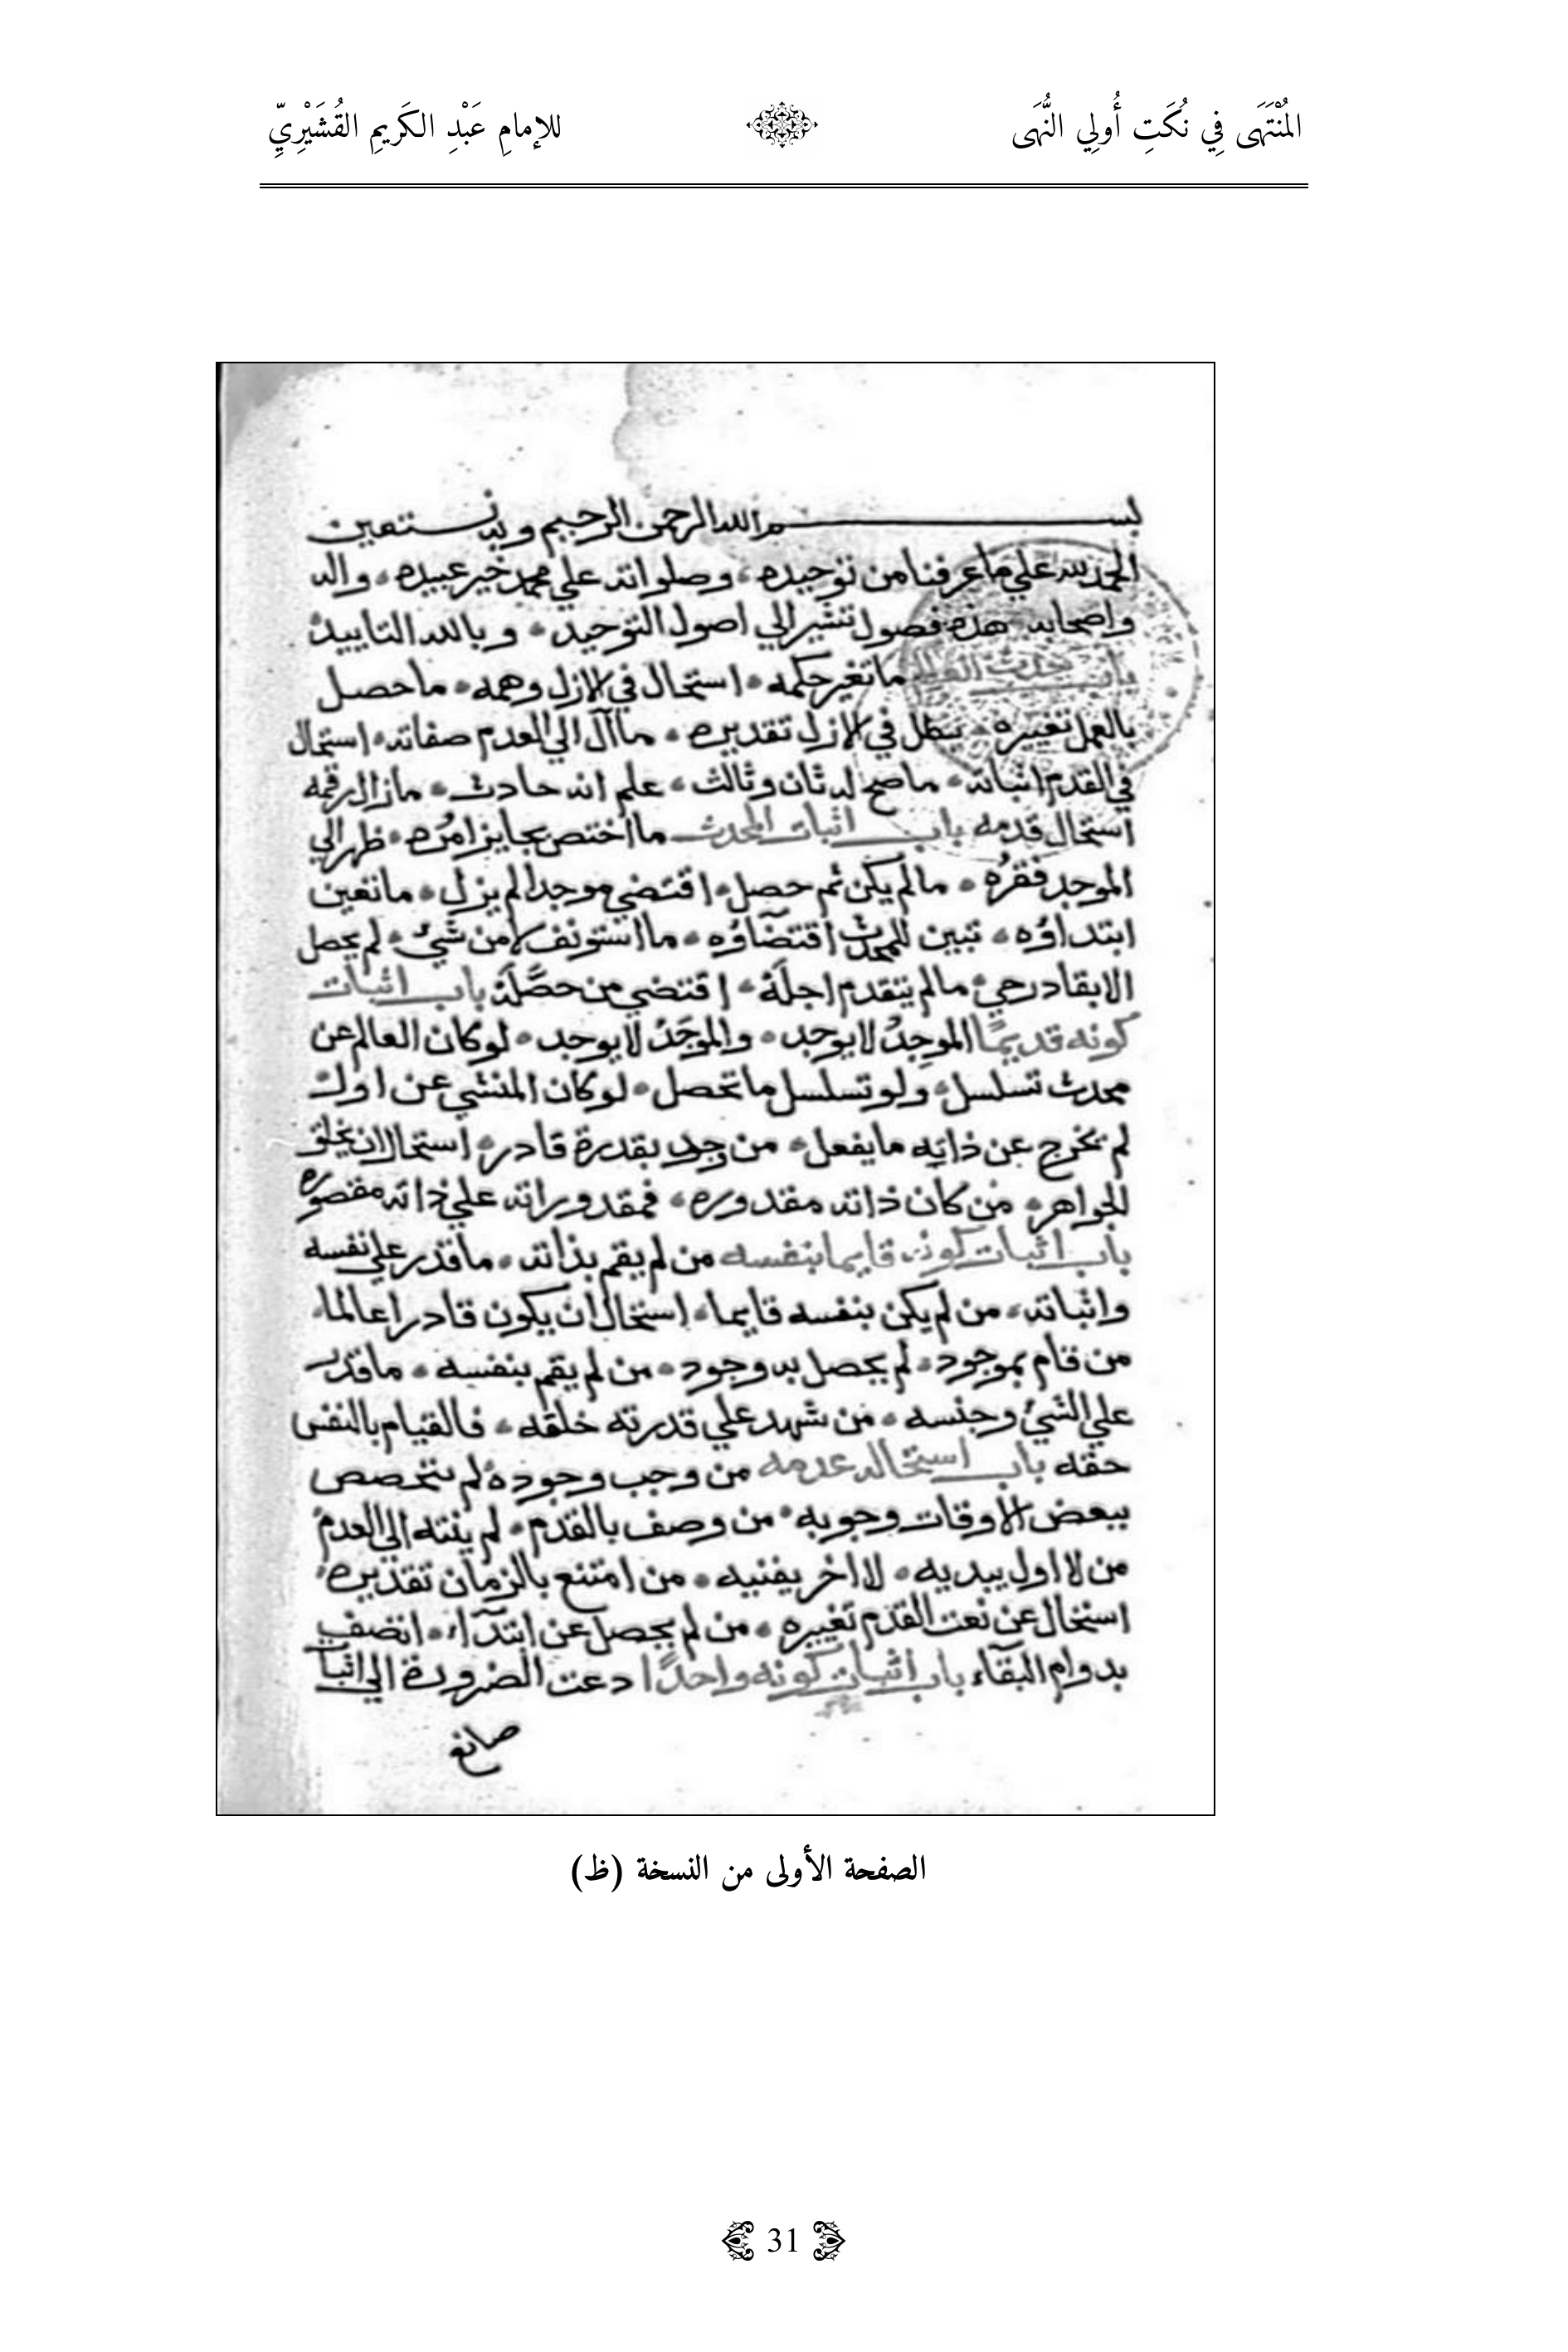 المُنْتَهَى فِي نُكَتِ أُولِي النُّهَى
للإمامِ عَبْدِ الكَريمِ القُشَيْرِيِّ
بسم الله الرحمن الرحيم وبه نستعين
الحمد لله علي ما عرفنا من توحيده وصلواته علي محمد خير عبيده واله
واصحابه هذه فصول تشير الي اصول التوحيد وبالله التاييد
باب حدث العالم ما تغير حكمه استحال في الازل وهمه ما حصل
بالعمل تغييره بطل في الازل تقديره ما اآل الي العدم صفاته استحال
في القدم اثباته ما صح له ثان وثالث علم انه حادث ما زال رقمه
استحال قدمه باب اثبات المحدث ما اختص بجايز امُره ظهر الي
الموجد فقرُه ما لم يكن ثم حصل اقتضي موجدا لم يزل ما تعين
ابتداوُه تبين للمحدث اقتضآوُه ما استونف لا من شيء لم يحصل
الا بقادر حي ما لم يتقدم اجلَهُ اقتضي من حصَّلَهُ باب اثبات
كونه قديمًا الموجِدُ لا يوجد والموجَدُ لا يوجد لو كان العالم عن
محدث تسلسل ولو تسلسل ما تحصل لو كان المنشي عن اول
لم يخرج عن ذاتِه ما يفعل من وجد بقدرة قادر استحال ان يخلق
الجواهر من كان ذاته مقدوره فمقدوراته علي ذاته مقصوره
باب اثبات كونه قايما بنفسه من لم يقم بذاته ما قدر علي نفسه
واثباته من لم يكن بنفسه قايما استحال ان يكون قادرا عالما
من قام بموجود لم يحصل به وجود من لم يقم بنفسه ما قدر
علي الشيء وجنسه من شهد علي قدرته خلقه فالقيام بالنفس
حقه باب استحاله عدمه من وجب وجوده لم يتخصص
ببعض الاوقات وجوبه من وصف بالقدم لم ينته الي العدم
من لا اول يبديه لا اخر يفنيه من امتنع بالزمان تقديره
استحال عن نعت القدم تغييره من لم يحصل عن ابتدآء اتصف
بدوام البقآء باب اثبات كونه واحدًا دعت الضرورة الي اثبا
صانع
الصفحة الأولى من النسخة (ظ)
31